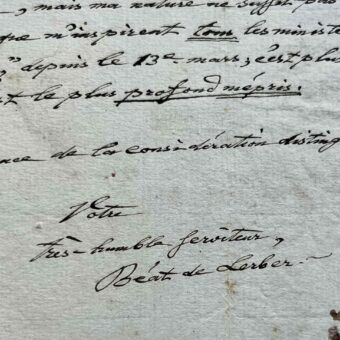 , mais ma nature ne suffit pas
que m'inspirent tous les ministe
" depuis le 13e mars; c'est plus
st le plus profond mépris.
ce de la considération disting
Votre
très-humble serviteur,
Béat de Lerber.